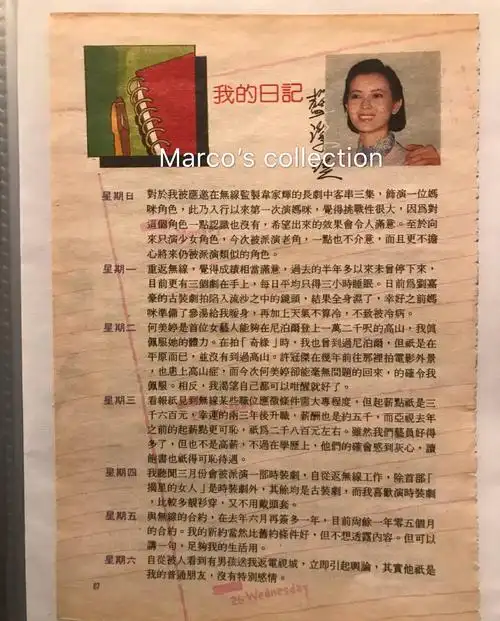 我的日記
藍潔瑛
Marco's collection
星期日 對於我被應邀在無線監製韋家輝的長劇中客串三集，飾演一位媽
咪角色，此乃入行以來第一次演媽咪，覺得挑戰性很大，因爲對
這個角色一點認識也沒有，希望出來的效果會令人滿意。至於向
來只演少女角色，今次被派演老角，一點也不介意，而且更不擔
心將來仍被派演類似的角色。
星期一 重返無線，覺得成績相當滿意，過去的半年多以來未曾停下來，
目前更有三個劇在手上，每日平均只得三小時睡眠。日前爲劉嘉
豪的古裝劇拍陷入流沙之中的鏡頭，結果全身濕了，幸好之前媽
咪準備了參湯給我暖身，再加上天氣不算冷，不致被冷病。
星期二 何美婷是首位女藝人能夠在尼泊爾登上一萬二千呎的高山，我眞
佩服她的體力。在拍「奇緣」時，我也曾到過尼泊爾，但祇是在
平原而已，並沒有到過高山。許冠傑在幾年前往那裡拍電影外景
，也患上高山症，而今次何美婷卻能毫無問題的回來，的確令我
佩服。相反，我渴望自己都可以咁醒就好了。
星期三 看報紙見到無線某些職位應徵條件需大專程度，但起薪點祇是三
千六百元，幸運的兩三年後升職，薪酬也是約五千，而亞視去年
之前的起薪點更可恥，祇爲二千八百元左右。雖然我們藝員好得
多了，但也不是高薪，不過在學歷上，他們的確會感到灰心，讀
飽書也祇得可恥待遇。
星期四 我聽聞三月份會被派演一部時裝劇，自從返無線工作，除首部「
摘星的女人」是時裝劇外，其餘均是古裝劇，而我喜歡演時裝劇
，比較多靚衫穿，又不用戴頭套。
星期五 與無線的合約，在去年六月再簽多一年，目前尙餘一年零五個月
的合約。我的新約當然比舊約條件好，但不想透露內容。但可以
講一句，足夠我的生活用。
星期六 自從被人看到有男孩送我返電視城，立即引起輿論，其實他祇是
我的普通朋友，沒有特別感情。
87
26 Wednesday